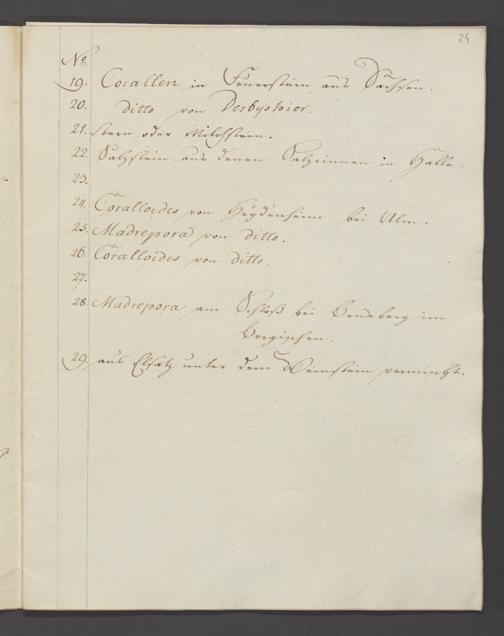 24
No
19. Corallen in Feuerstein aus Sachsen.
20. ditto von Derbyshier.
21. Stern oder Milchstein.
22. Salzstein aus denen Salzrinnen in Halle.
23.
24. Coralloides von Heydenheim bei Ulm.
25. Madrepora von ditto.
26. Coralloides von ditto.
27.
28. Madrepora am Schloß bei Bensberg im
Bergischen.
29. aus Elsatz unter dem Weinstein vermischt.